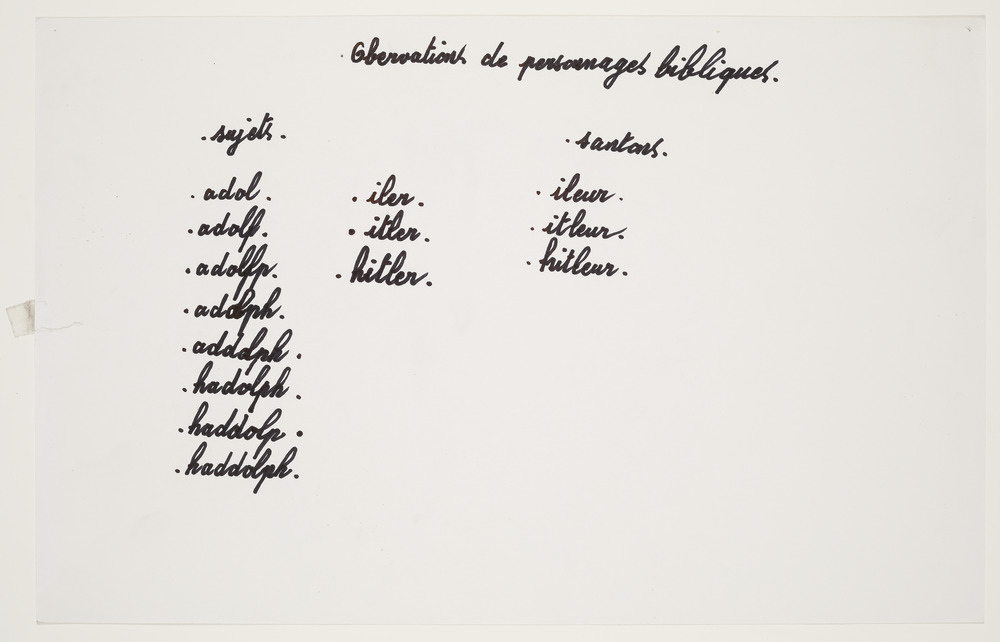 . Obervations de personnages bibliques.
. sujets .
. santons.
. adol . . iler . . ileur .
. adolp. . itler . . itleur.
. adolfp. . hitler . . hitleur .
. adolph.
. addolph .
. hadolph .
. haddolp .
. haddolph.